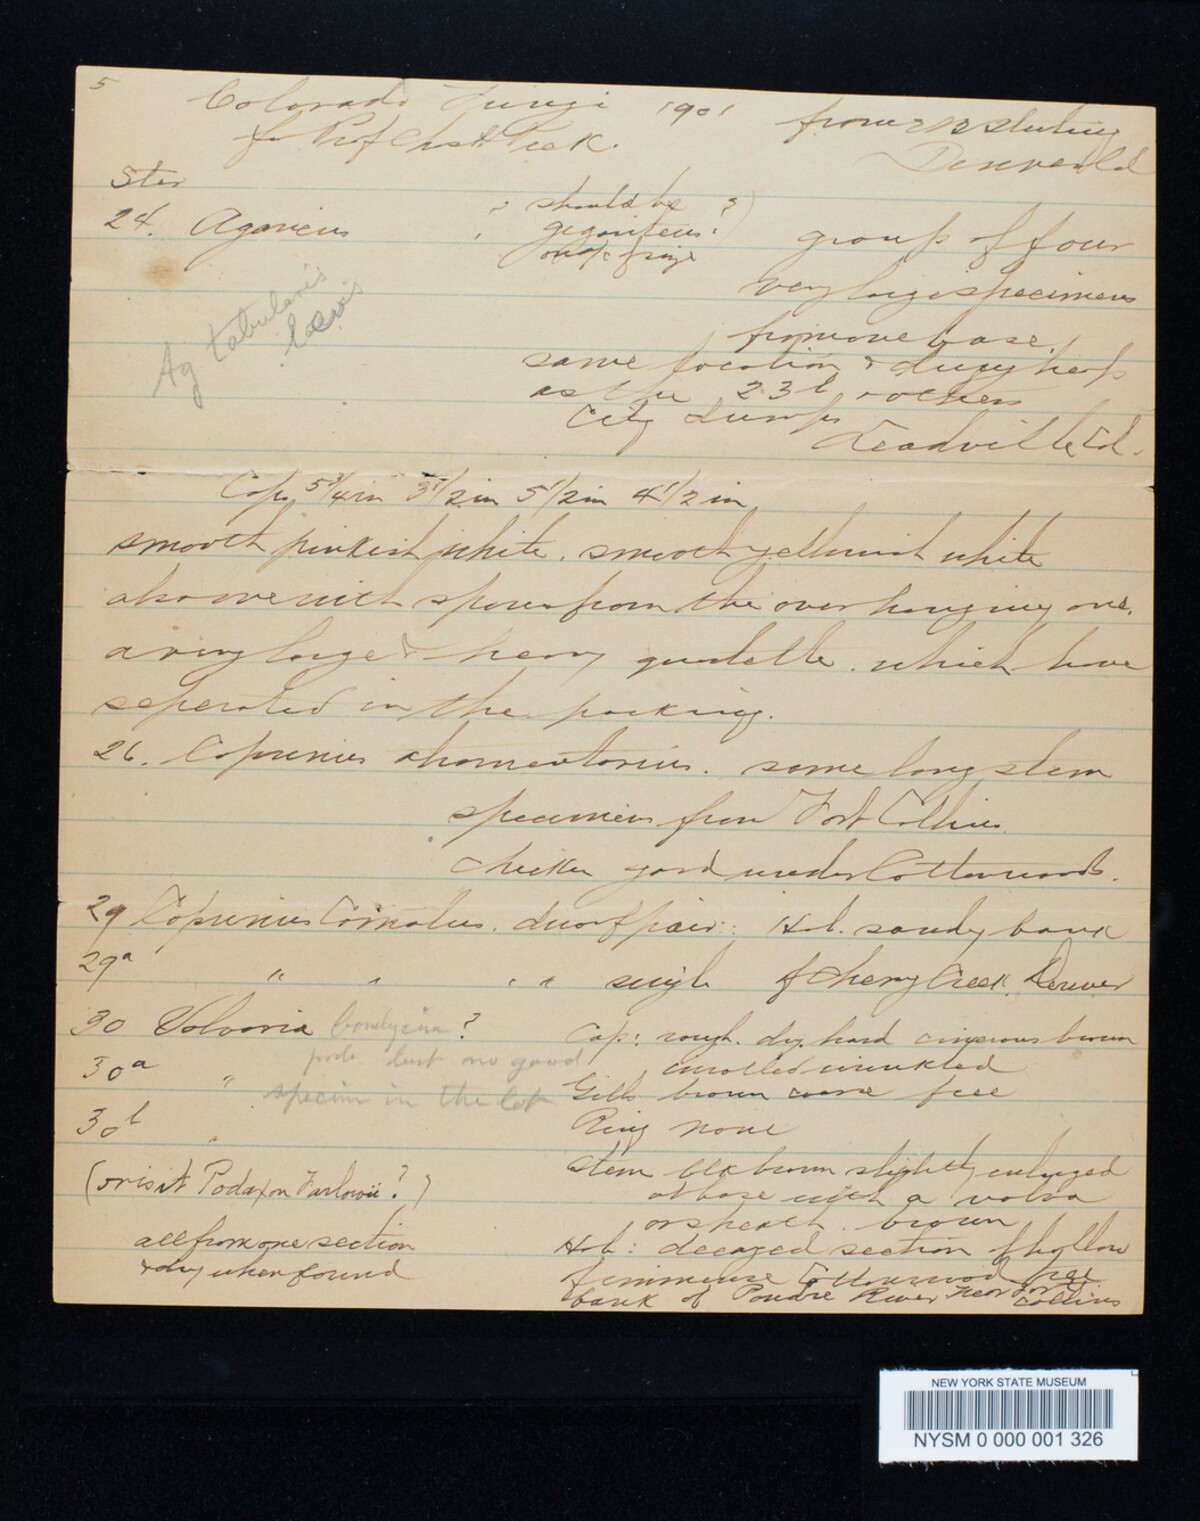 5
Colorado Fungi 1901 from E B Sterling
for Prof Chas H Peck. Denver Col
Ster
24. Agaricus ? should be ?
giganteus group of four
very large specimens
from one base.
Ag tabularis
same location & dump heap
as the 23b others
City dumps
Leadville Col.
Caps 5 3/4 in 3 1/2 in 5 1/2 in 4 1/2 in
smooth pinkish white. smooth yellowish white
also one with spores from the overhanging one.
a very large & heavy which have
seperated in the packing.
26. Coprinus atramentarius. some long stem
specimens from Fort Collins
chicken yard under Cottonwoods.
29 Coprinus Comatus. dwarf pair: Hab. sandy bank
29a " " " " single of Cherry Creek, Denver
30 Volvaria bombycina ? Cap: rough. dry. hard cinerous brown
prob but no good
30a " inrolled wrinkled
specim in the lot Gills brown free
30b " Ring none
Stem blk brown slightly enlarged
(or is it Podaxon Farlowii?) at base with a volva
or sheath. brown
all from one section Hab: decayed section of hollow
& dry when found of immense Cottonwood tree
bank of Poudre River near Fort Collins
NEW YORK STATE MUSEUM
NYSM 0 000 001 326